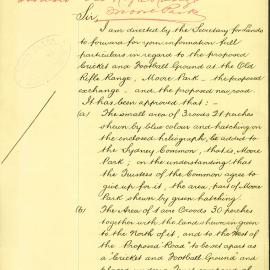 Sir,
I am directed by the Secretary for Lands
to forward for your information full
particulars in regard to the proposed
Cricket and Football Ground at the Old
Rifle Range, Moore Park - the proposed
exchange - and the proposed new road.
It has been approved that :-
(a) The small area of 3 roods 21 perches
shewn by blue colour and hatching on
the enclosed heliograph, be added to
the Sydney Common, that is, Moore
Park; on the understanding that
the Trustees of the Common agree to
give up for it, the area, part of Moore
Park shewn by green hatching.
(b) The Area of 1 acre 0 roods 30 perches
together with the Land shewn in green
to the North of it, and to the West of
the Proposed Road to be set apart as
a Cricket and Football Ground and